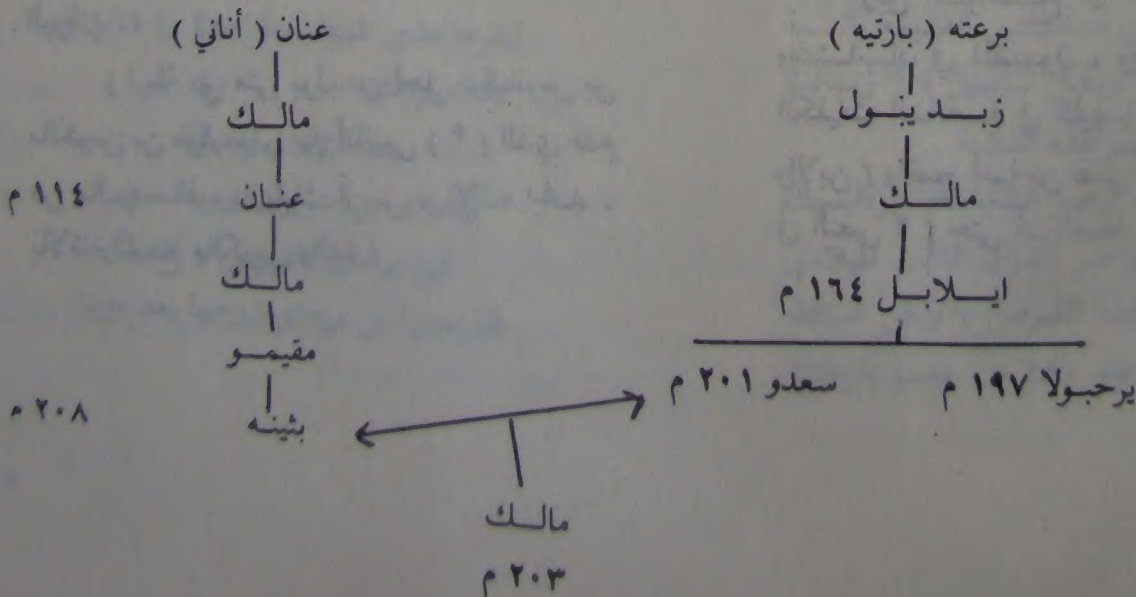 برعته ( بارتيه )
زبـد ينبـول
مالـــك
ايــلابــل ١٦٤ م
يرحبـولا ١٩٧ م
سعدو ٢٠١ م
عنان ( أناني )
مالــك
عنان ١١٤ م
مالــك
مقيمــو
بثينـه ٢٠٨ م
مالــك
٢٠٣ م